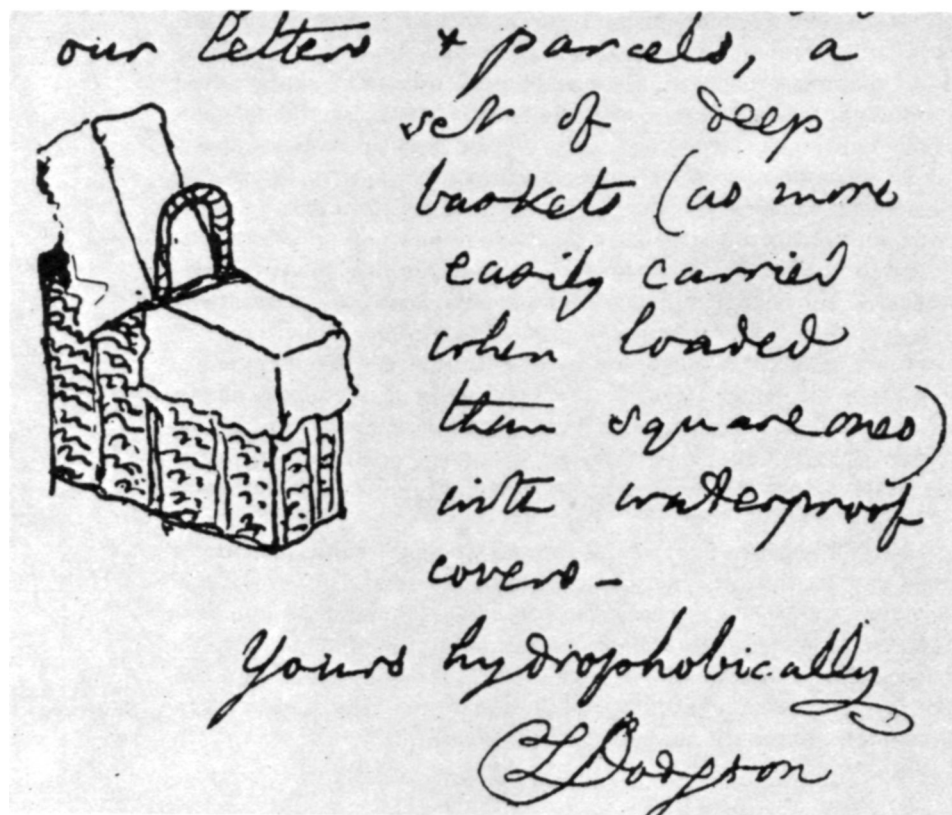 our letters & parcels, a
set of deep
baskets (as more
easily carried
when loaded
than square ones)
with waterproof
covers –
Yours hydrophobically
CL Dodgson